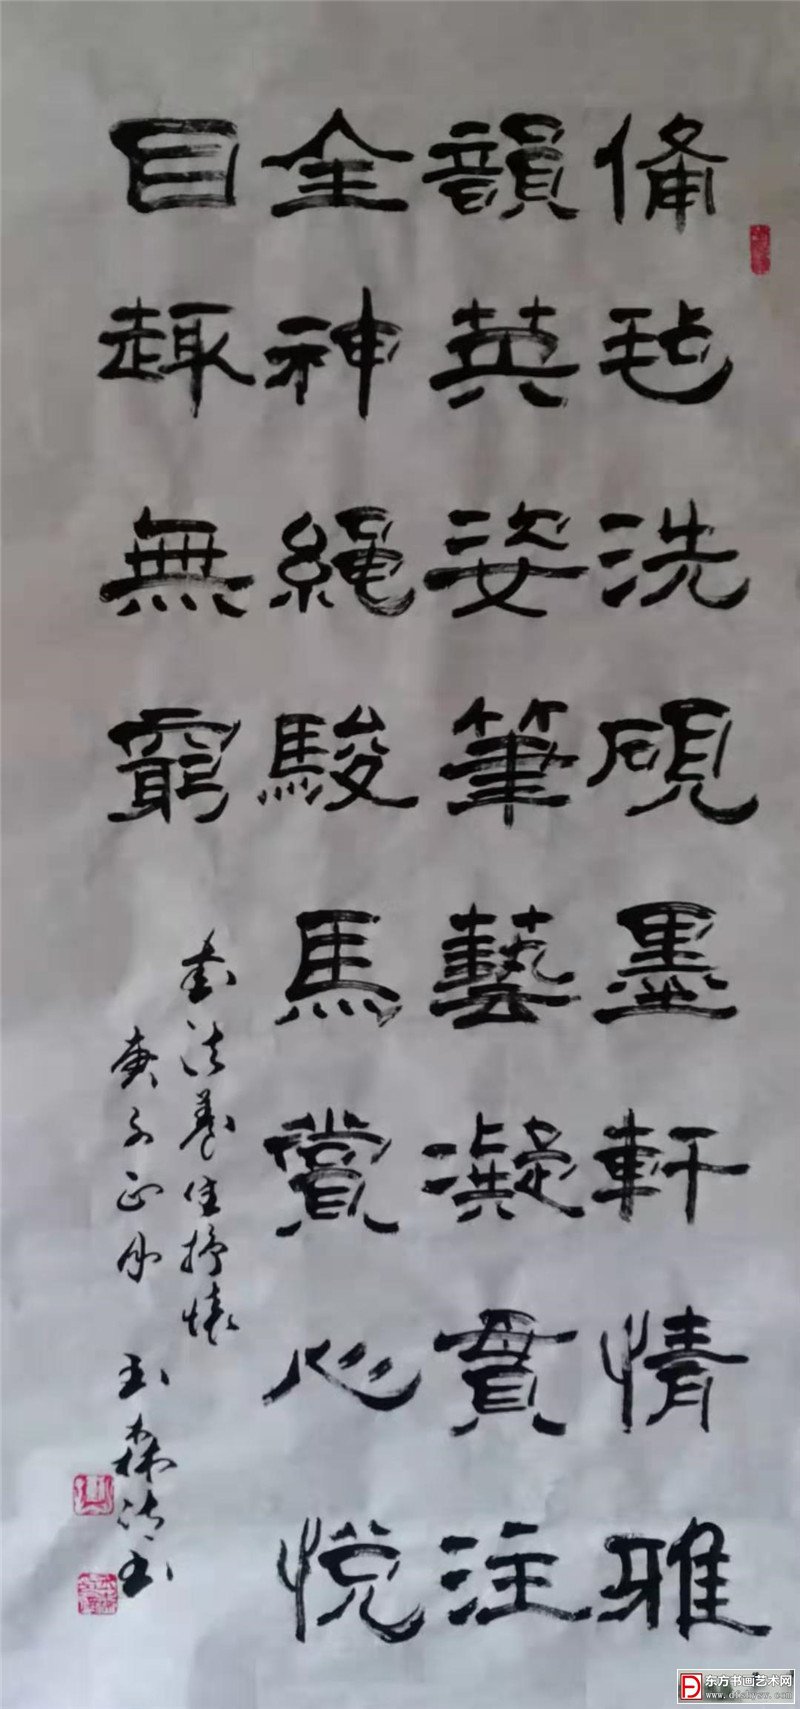 備毡洗硯墨軒情雅
韻英姿筆藝凝貫注
全神繩駿馬賞心悅
目趣無窮
書法養生抒懷
庚子正月 玉森清书
东方书画艺术网
www.dfshysw.com